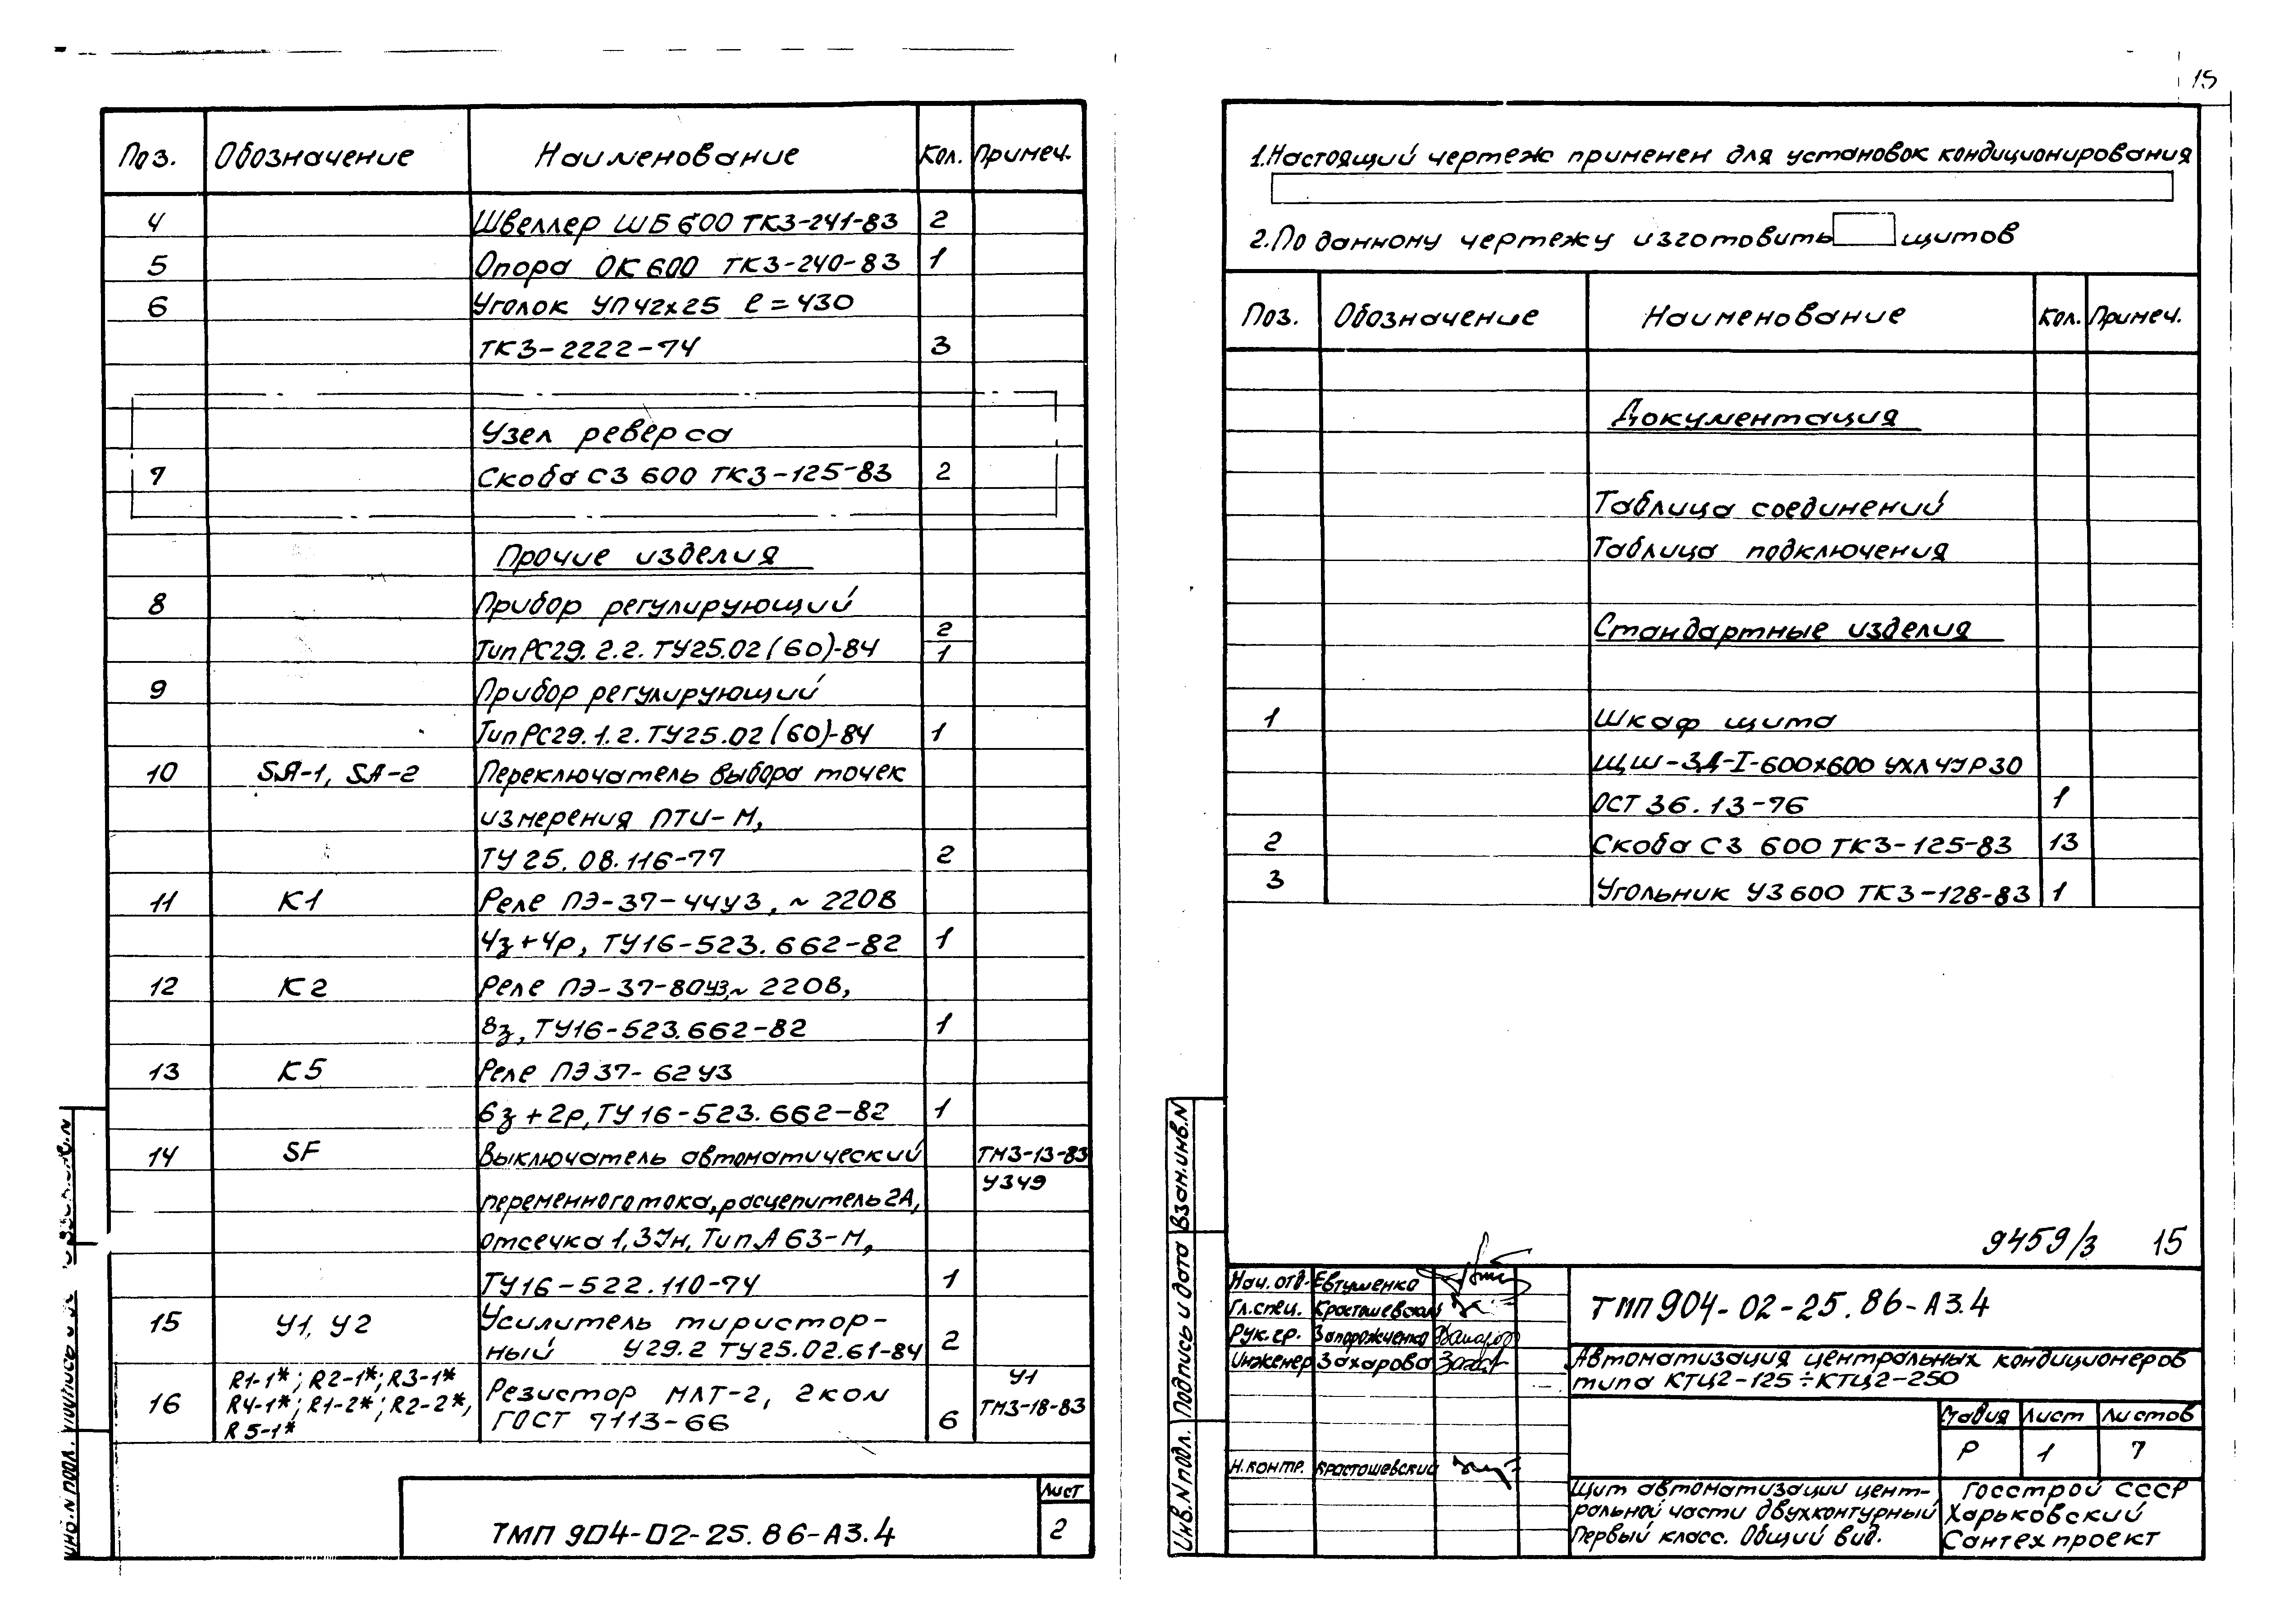 15
Поз. Обозначение Наименование Кол. Примеч.
4 Швеллер ШБ 600 ТК3-241-83 2
5 Опора ОК 600 ТК3-240-83 1
6 Уголок УП42х25 ℓ=430
ТК3-2222-74 3
Узел реверса
7 Скоба С3 600 ТК3-125-83 2
Прочие изделия
8 Прибор регулирующий
Тип РС29.2.2. ТУ25.02(60)-84 2/1
9 Прибор регулирующий
Тип РС29.1.2. ТУ25.02(60)-84 1
10 SA-1, SA-2 Переключатель выбора точек
измерения ПТИ-М,
ТУ 25.08.116-77 2
11 К1 Реле ПЭ-37-44У3, ~ 220В
4з+4р, ТУ16-523.662-82 1
12 К2 Реле ПЭ-37-80У3,~ 220В,
8з, ТУ16-523.662-82 1
13 К5 Реле ПЭ37-62У3
6з+2р, ТУ16-523.662-82 1
14 SF Выключатель автоматический ТМ3-13-83
переменного тока, расцепитель 2А, У349
отсечка 1,3Jн, Тип А 63-М,
ТУ16-522.110-74 1
15 У1, У2 Усилитель тиристор-
ный У29.2 ТУ25.02.61-84 2
16 R1-1*; R2-1*; R3-1* Резистор МЛТ-2, 2ком У1
R4-1*; R1-2*; R2-2*, ГОСТ 7113-66 6 ТМ3-18-83
R5-1*
ТМП 904-02-25.86-А3.4
Лист
2
Инв.N подл.
1.Настоящий чертеж применен для установок кондиционирования
2.По данному чертежу изготовить щитов
Поз. Обозначение Наименование Кол. Примеч.
Документация
Таблица соединений
Таблица подключения
Стандартные изделия
1 Шкаф щита
ЩШ-3Д-I-600х600 УХЛ4JP30
ОСТ 36.13-76 1
2 Скоба С3 600 ТК3-125-83 13
3 Угольник У3 600 ТК3-128-83 1
9459/3 15
Инв.N подл. Подпись и дата Взам.инв.N
Нач. отд. Евтушенко
Гл.спец. Красташевский
Рук.гр. Запорожченко
Инженер Захарова
Н.контр. Красташевский
ТМП 904-02-25.86-А3.4
Автоматизация центральных кондиционеров
типа КТЦ2-125÷КТЦ2-250
Стадия Лист Листов
Р 1 7
Щит автоматизации цент-
ральной части двухконтурный
Первый класс. Общий вид.
Госстрой СССР
Харьковский
Сантехпроект